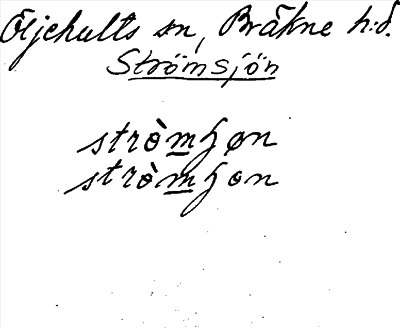 Öljehults sn, Bräkne h:d.
Strömsjön
stròmɧøn
stròmɧon